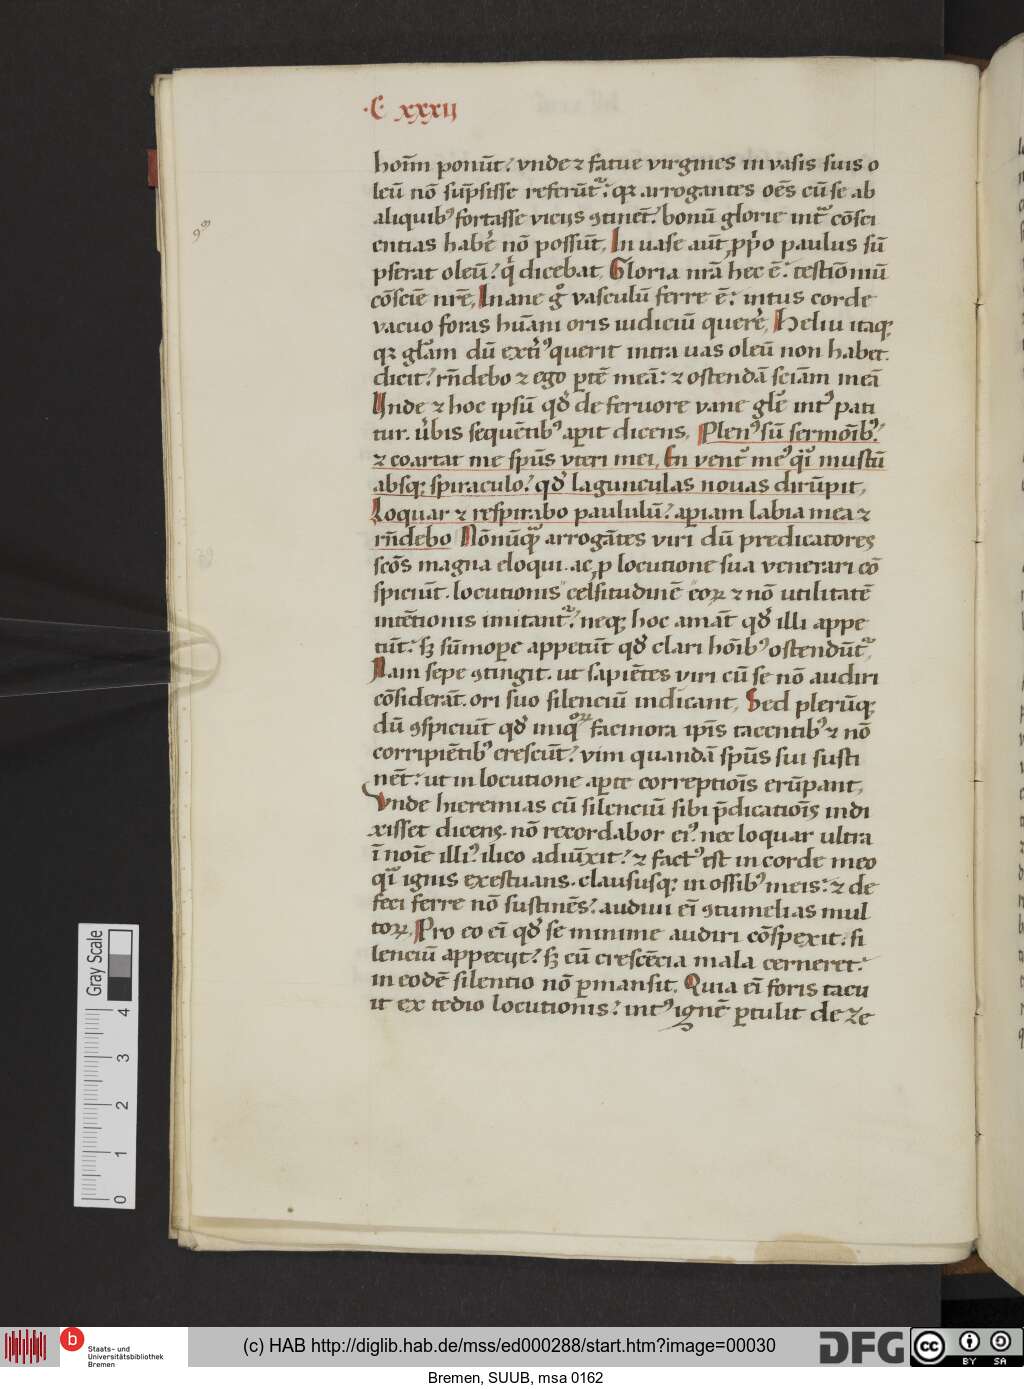 ·C· xxxij
hoīm ponūt? vnde ⁊ fatue virgines in vasis suis o
leū nō sūpsisse referūtᷣ: qꝛ arrogantes oēs cū se ab
aliquibꝰ fortasse vicijs ꝯtinēt: bonū glorie intᷣ cōsci
entias habēt nō possūt, In uase aūt pp̄o paulus sū
pserat oleū? qͥ dicebat, Gloria nr̄a hec ē: testiōniū
cōscie nr̄e, Inane gͦ vasculū ferre ē: intus corde
vacuo foras hūani oris iudiciū querē, Heliu itaqꝫ
qꝛ glam dū extiꝰ querit intra uas oleū non habet.
dicit? rn̄debo ⁊ ego ꝑtē meā: ⁊ ostendā sciam meā
Vnde ⁊ hoc ipsū qd̓ de feruore vane gle intꝰ pati
tur. v̓bis sequētibꝰ aꝑit dicens, Plenꝰ sū sermōibꝰ?
⁊ coartat me spūs vteri mei, En ventᷣ meꝰ qͣi mustū
absqꝫ spiraculo? qd̓ lagunculas nouas dirūpit,
Loquar ⁊ respirabo paululū? aꝑiam labia mea ⁊
rn̄debo Nōnūqͣ arrogātes viri dū predicatores
scōs magna eloqui. ac ꝓ locutione sua venerari cō
spiciūt. locutionis celsitudinē eoꝝ ⁊ nō utilitatē
intētionis imitantᷣ? neqꝫ hoc amāt qd̓ illi appe
tūt: sꝫ sūmoꝑe appetūt qd̓ clari hōibꝰ ostendūtᷣ,
Nam sepe ꝯtingit. ut sapiētes viri cū se nō audiri
cōsiderāt. ori suo silenciū indicant, Sed plerūqꝫ
dū ꝯspiciūt qd̓ iniqͦꝝ facinora ip̄is tacentibꝰ ⁊ nō
corripiētibꝰ crescūt? vim quandā spūs sui susti
nēt: ut in locutione aꝑte correptiōis erūpant,
Vnde hieremias cū silenciū sibi p̄dicatiōis indi
xisset dicens. nō recordabor eiꝰ nec loquar ultra
ī noīe illiꝰ: ilico adiūxit? ⁊ factꝰ est in corde meo
qͣi ignis exestuans. claususqꝫ in ossibꝰ meis: ⁊ de
feci ferre nō sustinēs? audiui ei ꝯtumelias mul
toꝝ, Pro eo ei qd̓ se minime audiri cōspexit. si
lenciū appecijt? sꝫ cū crescēcia mala cerneret:
in eodē silentio nō ꝑmansit, Quia ei foris tacu
it ex tedio locutionis? intꝰ ignē ꝑtulit de ze
Gray Scale
4
3
2
1
0
b
Staats- und
Universitätsbibliothek
Bremen
(c) HAB http://diglib.hab.de/mss/ed000288/start.htm?image=00030
DFG
cc
BY SA
Bremen, SUUB, msa 0162